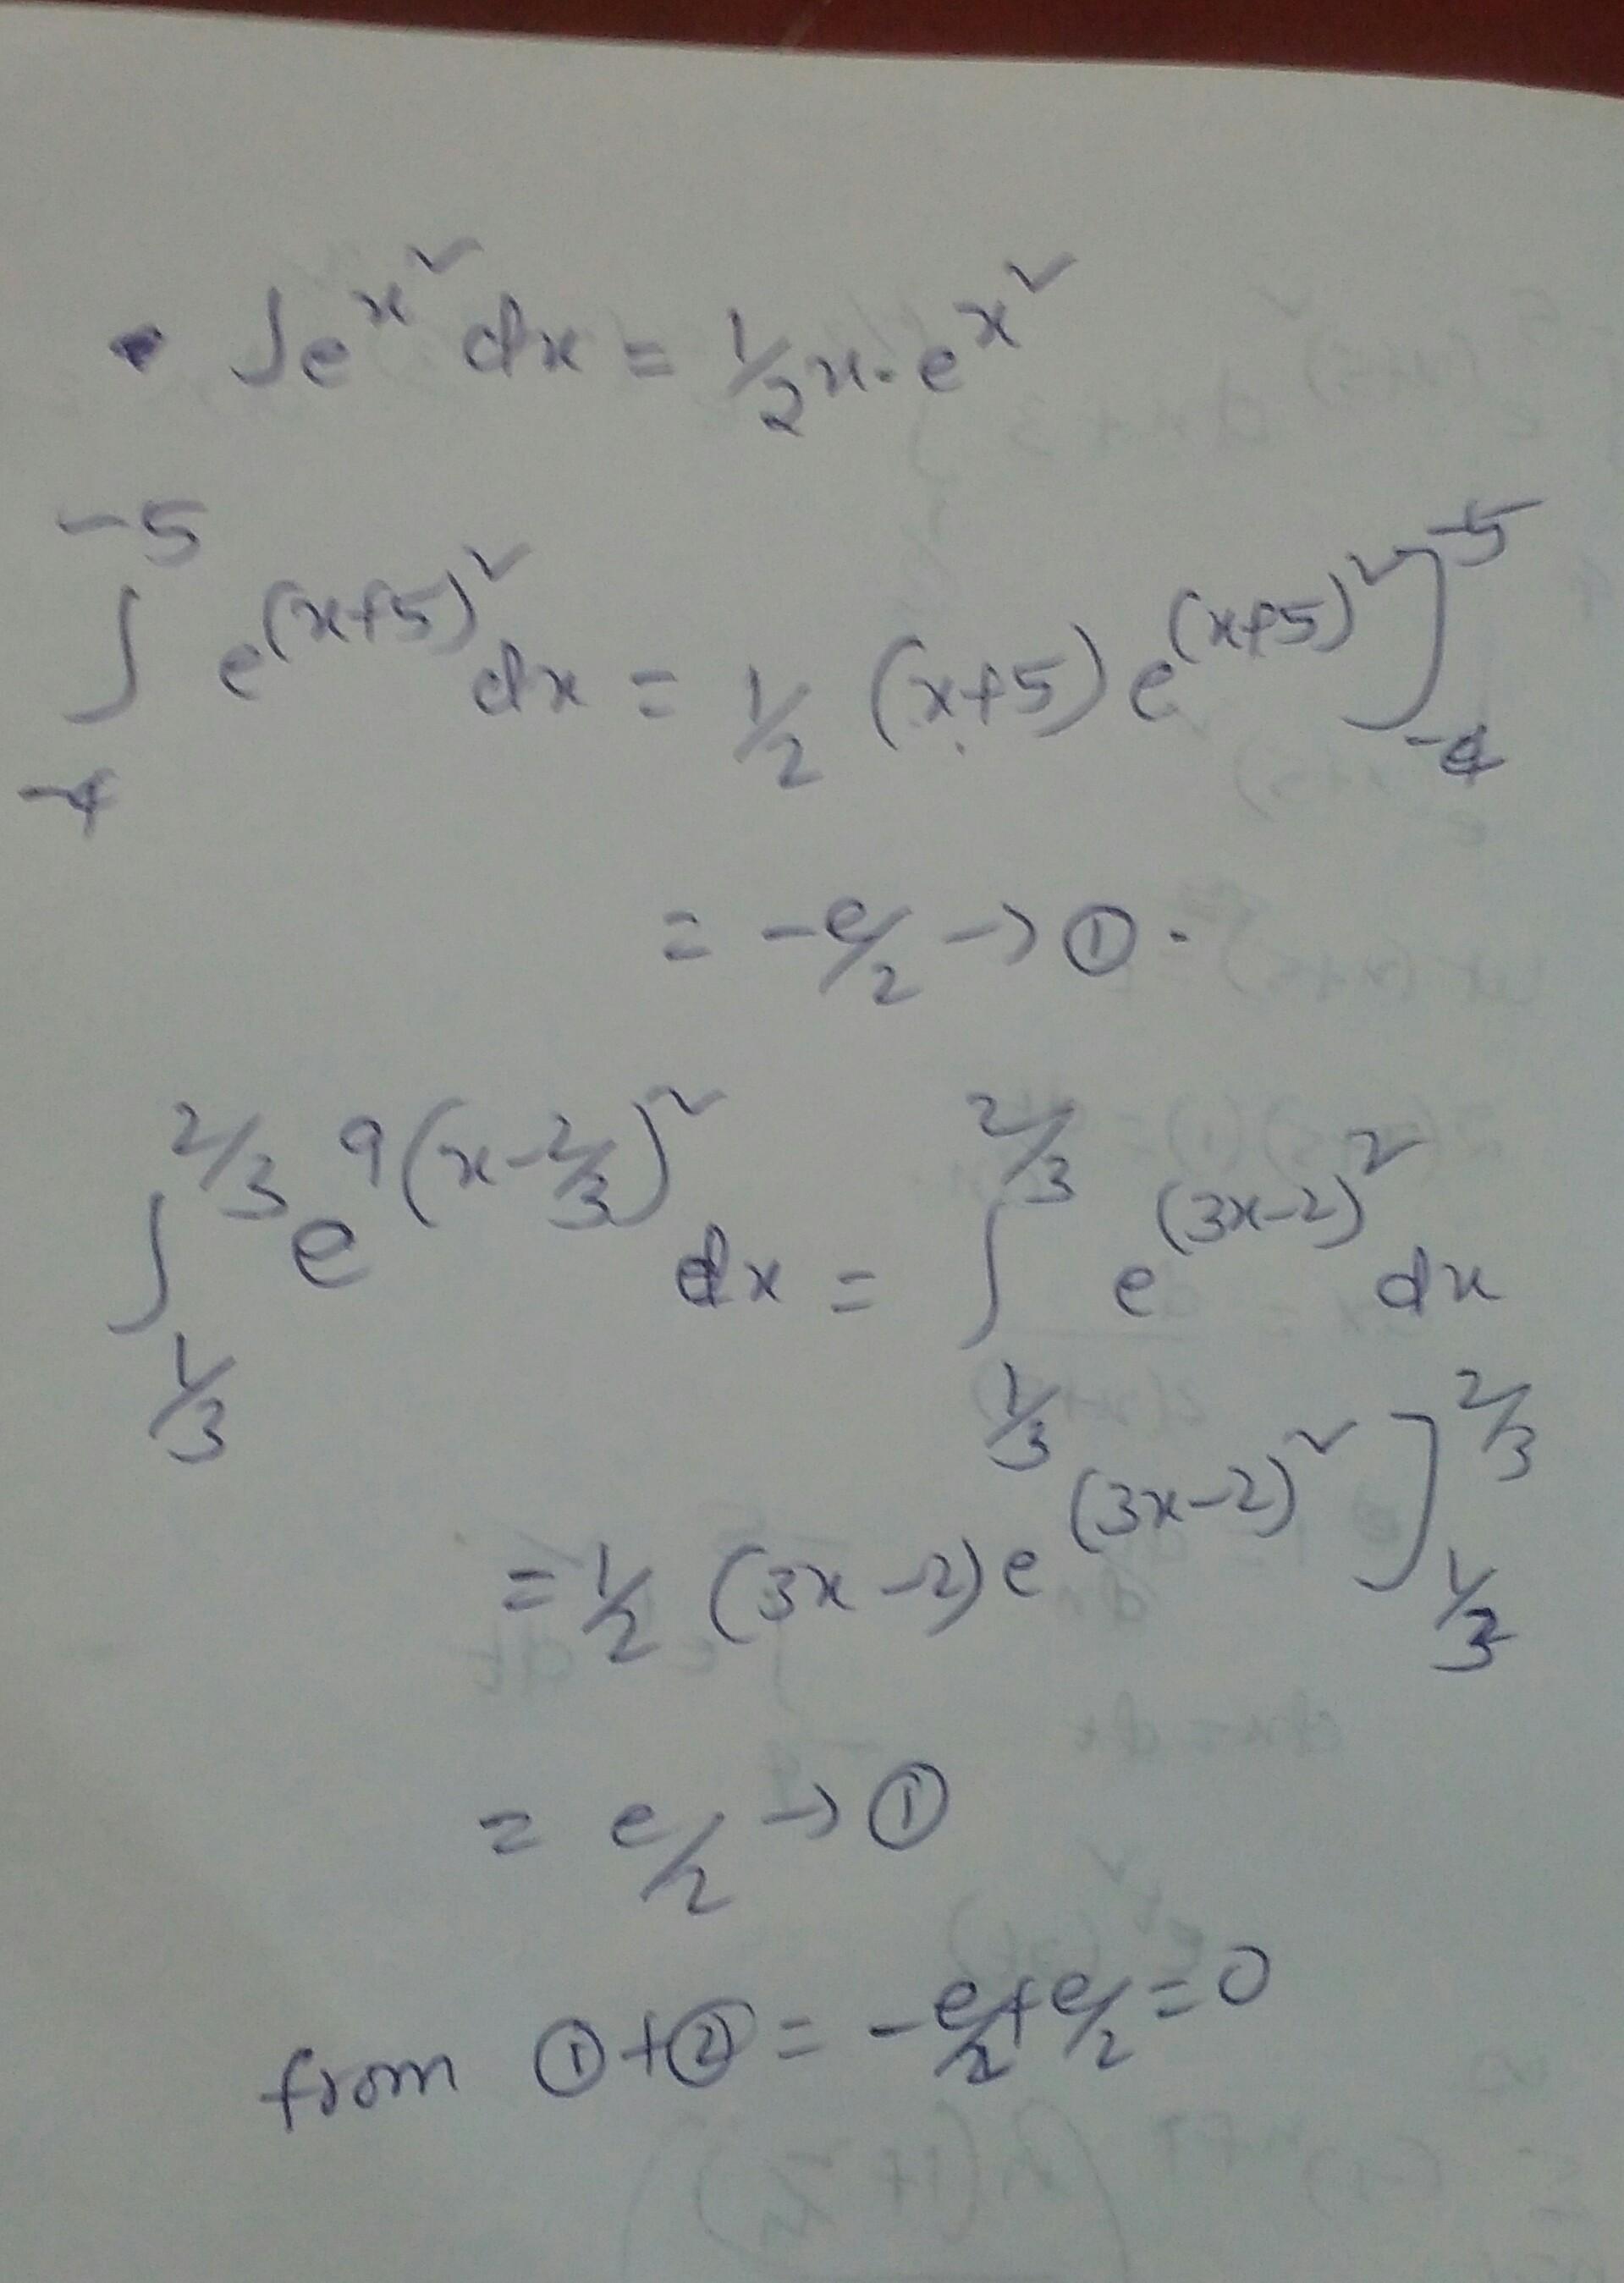 • ∫e^x² dx = 1/2 x · e^x²
∫_{-4}^{-5} e^(x+5)² dx = 1/2 (x+5) e^(x+5)² ]_{-4}^{-5}
= -e/2 → ①.
∫_{1/3}^{2/3} e^9(x-2/3)² dx = ∫_{1/3}^{2/3} e^(3x-2)² dx
= 1/2 (3x-2) e^(3x-2)² ]_{1/3}^{2/3}
= e/2 → ①
from ①+② = -e/2+e/2 = 0